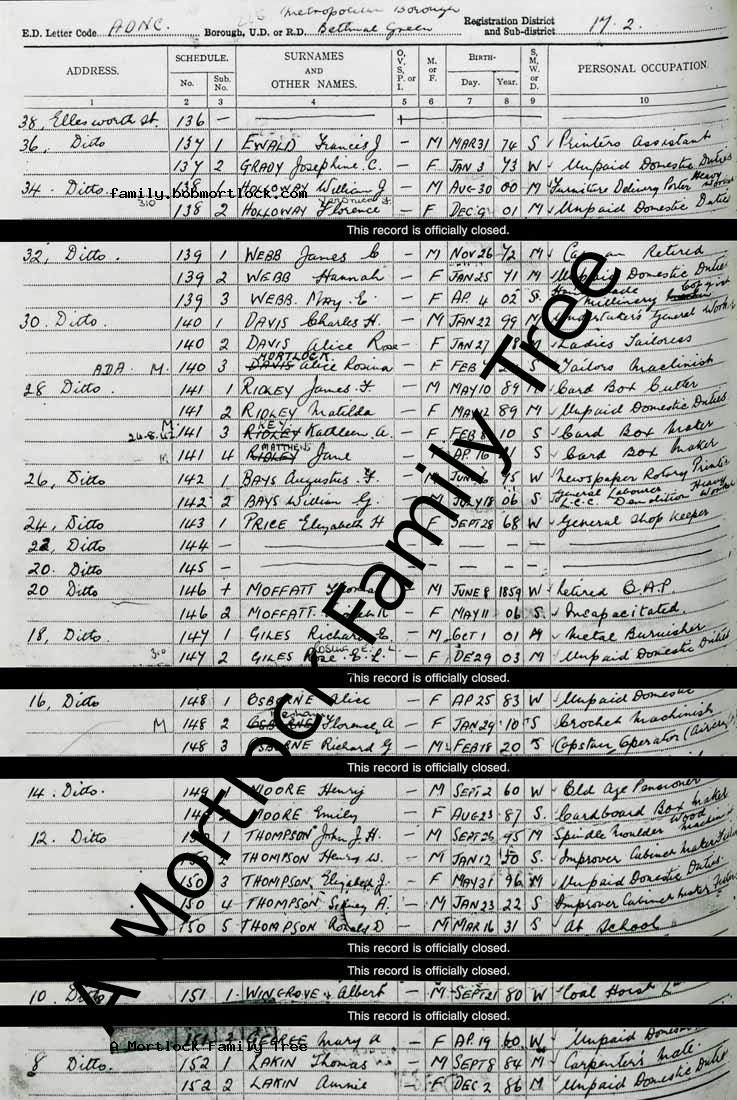 Metropolitan Borough
E.D. Letter Code ADNC. Borough, U.D. or R.D. Bethnal Green Registration District and Sub-district 17.2.
ADDRESS. SCHEDULE. SURNAMES AND OTHER NAMES. O, V, S, P, or I. M. or F. BIRTH— S, M, W, or D. PERSONAL OCCUPATION.
No. Sub. No. Day. Year.
1 2 3 4 5 6 7 8 9 10
38, Ellesworth St. 136 —
36, Ditto 137 1 EWALD Francis J — M MAR 31 74 S Printers Assistant
137 2 GRADY Josephine C. — F JAN 3 73 W Unpaid Domestic Duties
34. Ditto 138 1 HOLLOWAY William J — M AUG 30 00 M Furniture Delivery Porter Heavy Worker
family.bobmortlock.com
310
138 2 HOLLOWAY Florence — F DEC 9 01 M Unpaid Domestic Duties
This record is officially closed.
32, Ditto. 139 1 WEBB James C — M NOV 26 72 M Retired
139 2 WEBB Hannah — F JAN 25 71 M Unpaid Domestic Duties
139 3 WEBB. May. E. — F AP. 4 02 S. Millinery
30. Ditto. 140 1 DAVIS Charles H. — M JAN 22 99 M Undertaker's General Worker
140 2 DAVIS Alice Rose — F JAN 27 M Ladies Tailoress
MORTLOCK
ADA. M. 140 3 DAVIS Alice Rosina — F FEB S Tailors Machinist
28 Ditto. 141 1 RIDLEY James. F. — M MAY 10 89 M Card Box Cutter
141 2 RIDLEY Matilda — F MAY 89 M Unpaid Domestic Duties
M. KEY
26.8.42 141 3 RIDLEY Kathleen. A. — F FEB 8 10 S Card Box Maker
M. MATTHEWS
141 4 RIDLEY Jane — AP. 16 S Card Box Maker
26, Ditto 142 1 BAYS Augustus. F. — JUNE W Newspaper Rotary Printer
142 2 BAYS William G. — M JULY 18 06 S General Labourer L.C.C. Demolition Heavy Worker
24, Ditto 143 1 PRICE Elizabeth H — F SEPT 28 68 W General Shop Keeper
22, Ditto 144 —
20. Ditto 145 —
20 Ditto 146 MOFFATT — M JUNE 8 1859 W retired O.A.P.
146 2 MOFFATT — F MAY 11 06 S. Incapacitated.
18, Ditto. 147 1 GILES Richard — M OCT 1 01 M Metal Burnisher
310 147 2 GILES Rose E. L. — F DE 29 03 M Unpaid Domestic Duties
This record is officially closed.
16, Ditto 148 1 OSBORNE Alice — F AP 25 83 W Unpaid Domestic
M 148 2 OSBORNE Florence A — F JAN 29 10 S Crochet Machinist
148 3 OSBORNE Richard G — M FEB 18 20 S Capstan Operator (Aircraft)
This record is officially closed.
14. Ditto. 149 1 MOORE Henry — M SEPT 2 60 W Old Age Pensioner
MOORE Emily — F AUG 23 87 S. Cardboard Box Maker
12. Ditto THOMPSON John J. H. — M SEPT 26 95 M Spindle Moulder Wood Machinist
2 THOMPSON Henry W. — M JAN 12 S. Improver Cabinet Maker
150 3 THOMPSON Elizabeth J. — F MAY 31 96 M Unpaid Domestic Duties
150 4 THOMPSON Sidney A. — M JAN 23 22 S Improver Cabinet Maker
150 5 THOMPSON Ronald D — M MAR 16 31 S At School
This record is officially closed.
This record is officially closed.
10. Ditto 151 1. WINGROVE Albert — M SEPT 21 80 W Coal Hoist
This record is officially closed.
Mary A — F AP. 19 60 W Unpaid Domestic
A Mortlock Family Tree
8 Ditto. 152 1 LAKIN Thomas — M SEPT 8 84 M Carpenter's Mate
152 2 LAKIN Annie — F DEC 2 86 M Unpaid Domestic Duties
A Mortlock Family Tree